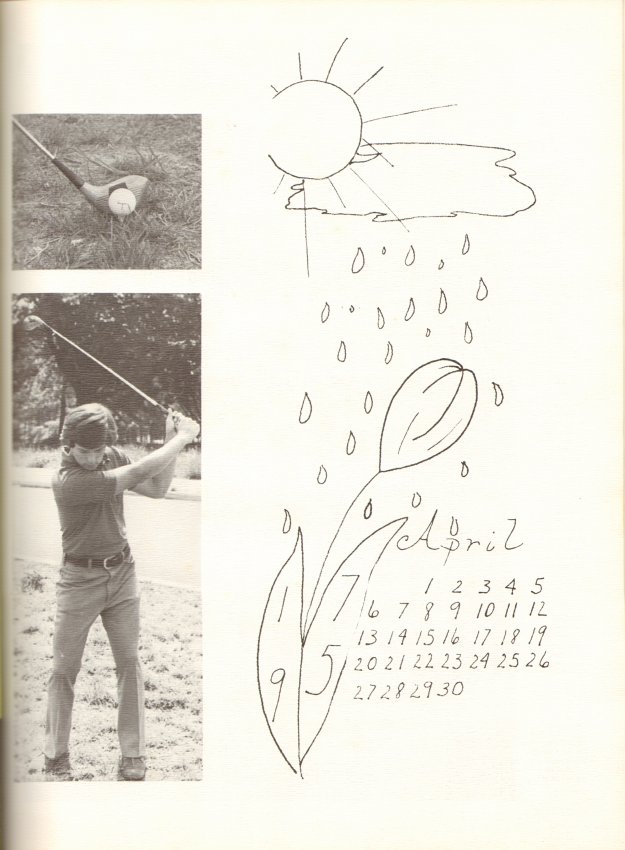 April
1 2 3 4 5
6 7 8 9 10 11 12
13 14 15 16 17 18 19
20 21 22 23 24 25 26
27 28 29 30
1 7
9 5